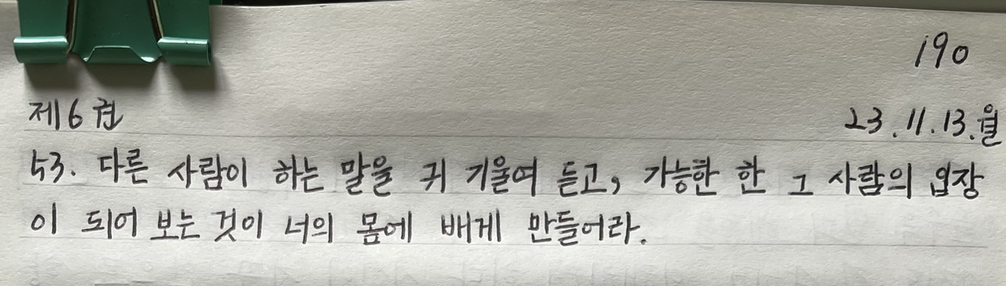 190
제6권
23.11.13.월
53. 다른 사람이 하는 말을 귀 기울여 듣고, 가능한 한 그 사람의 입장
이 되어 보는 것이 너의 몸에 배게 만들어라.